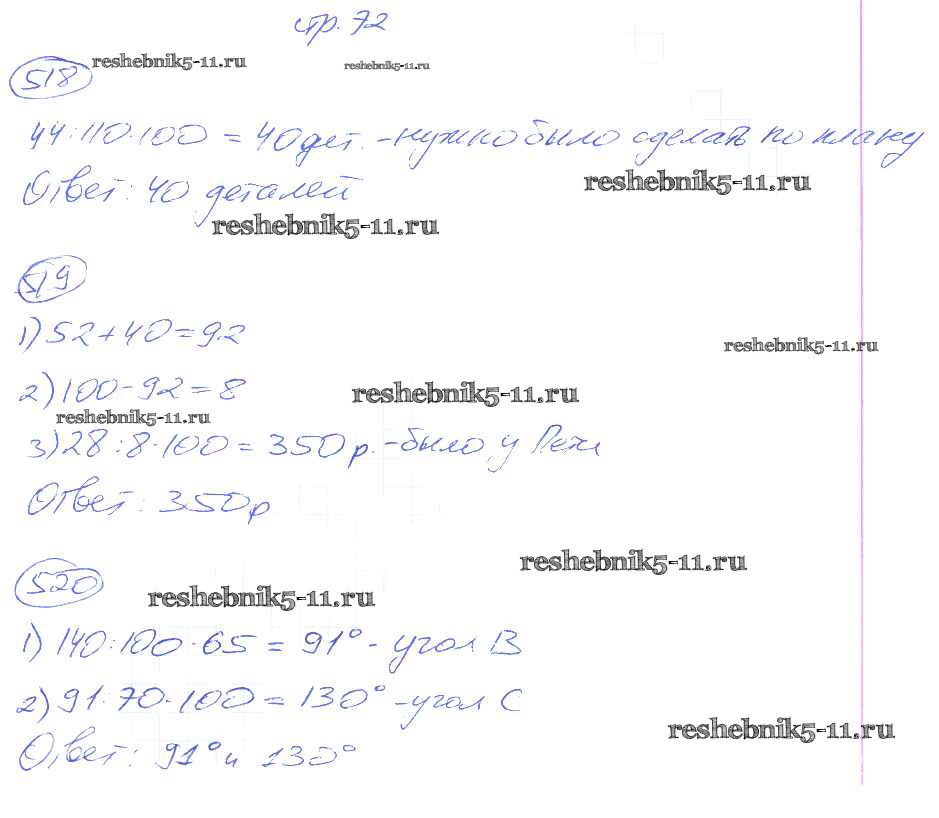 стр. 72
518 reshebnik5-11.ru reshebnik5-11.ru
44:110·100 = 40 дет. - нужно было сделать по плану
Ответ: 40 деталей reshebnik5-11.ru
reshebnik5-11.ru
519
1) 52+40=92
reshebnik5-11.ru
2) 100-92=8 reshebnik5-11.ru
reshebnik5-11.ru
3) 28:8·100 = 350 р. - было у Пети
Ответ: 350р
reshebnik5-11.ru
520 reshebnik5-11.ru
1) 140:100·65 = 91° - угол В
2) 91·70·100 = 130° - угол С
reshebnik5-11.ru
Ответ: 91° и 130°